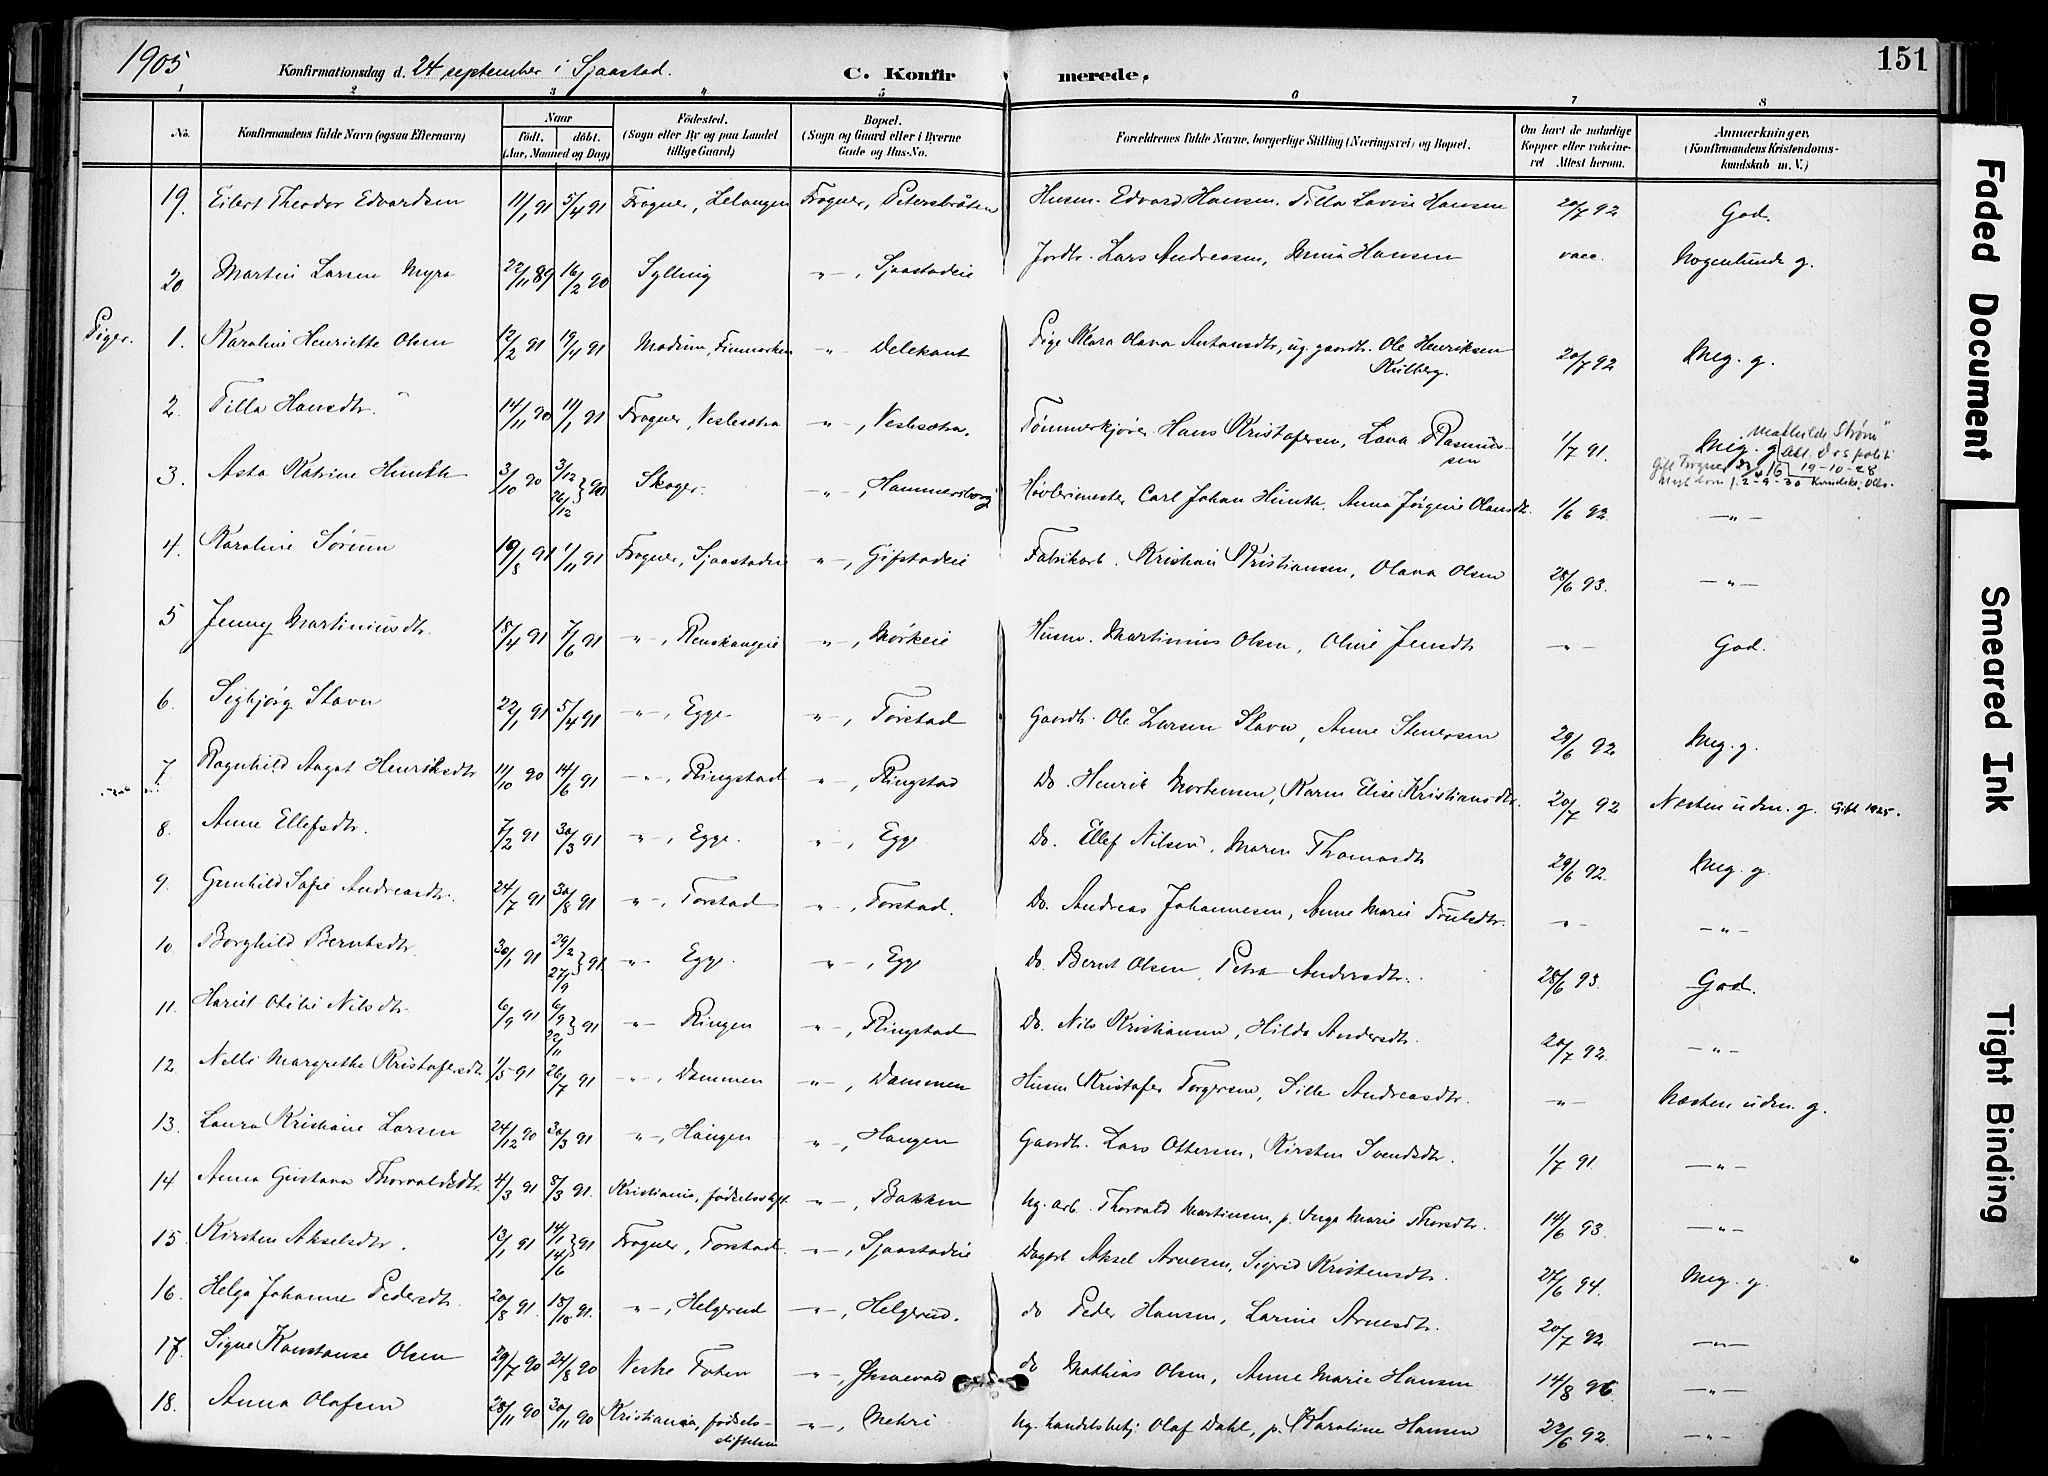 1905
Konfirmationsdag d. 24 september i Sjaastad.
C. Konfirmerede.
151
1 2 3 4 5 6 7 8
No.
Konfirmandens fulde Navn (ogsaa Efternavn)
Naar
født. døbt.
(Aar, Maaned og Dag)
Fødested.
(Sogn eller By og paa Landet
tillige Gaard)
Bopæl.
(Sogn og Gaard eller i Byerne
Gade og Hus-No.
Forældrenes fulde Navne, borgerlige Stilling (Næringsvei) og Bopæl.
Om havt de naturlige
Kopper eller vakcine-
ret Attest herom.
Anmærkninger.
(Konfirmandens Kristendoms-
kundskab m. V.)
19. Eilert Theodor Edvardsen 11/1 91 5/4 91 Frogner, Lelangen Frogner, Petersbråten Husm. Edvard Hansen, Tilla Lovise Hansen 20/7 92 God.
20 Martin Larsen Myra 22/11 89 16/2 90 Sylling -"-, Sjaastadeie Jordbr. Lars Andreasen, Hansen vacc. Nogenlunde g.
Piger.
1. Karoline Henriette Olsen 12/2 91 19/4 91 Modum, Finmarken -"- Delekant Pige Klara Olava Antonsdtr, ug. gaardbr. Ole Henriksen
Kulberg. 20/7 92 Meg. g.
2. Tilla Hansdtr. 14/11 90 11/1 91 Frogner, Veslesætra -"-, Veslesætra. Tømmerkjører Hans Kristofersen, Lava Rasmus-
sen 1/7 91. Meg. g
"Mathilde Strøm"
Att. Oslo politi
19-10-28
3. Asta Katrine Hunth 3/10 90 3/12 26/12 } 90 Skoger. -"-, Hammersborg Høvlerimester Carl Johan Hunth, Anna Jørgine Olausdtr. 1/6 92 -"-
4. Karoline Sørum 19/8 91 1/11 91 Frogner, Sjaastadeie -"-, Gifstadeie Fabrikarb. Kristian Kristiansen, Olava Olsen 28/6 93. -"-
5 Jenny Martiniusdtr. 18/4 91 7/6 91 -"-, Renskaugeie -"-, Mørkeie Husm. Martinius Olsen, Oline Jensdtr -"- God.
6. Sigbjørg Stavn 22/1 91 5/4 91 -"-, Egge -"-, Torstad Gaardb. Ole Larsen Stavn, Anne Stenersen 29/6 92 Meg. g.
7 Ragnhild Aagot Henriksdtr 11/10 90 14/6 91 -"-, Ringstad -"-, Ringstad Do. Henrik Mortensen, Karen Elise Kristiansdtr. 20/7 92 Næsten udm. g. Gift 1925.
8. Anne Ellefsdtr. 7/2 91 30/3 91 -"-, Egge. -"-, Egge Do. Ellef Nilsen, Maren Thomasdtr 29/6 92. Meg. g.
9. Gunhild Sofie Andreasdtr. 24/7 91 30/8 91 -"-, Torstad -"-, Torstad. Do. Andreas Johannesen, Anne Marie Trulsdtr. -"- -"-
10 Borghild Berntsdtr. 30/1 91 29/2 27/9 } 91 -"- Egge. -"-, Egge Do. Bernt Olsen, Petra Andersdtr. 28/6 93. God.
11. Hariet Otilie Nilsdtr. 6/9 91 6/9 22/11 } 91 -"- Ringen -"-, Ringstad Do. Nils Kristiansen, Hilda Andersdtr. 20/7 92. -"-
12. Nelli Margrethe Kristofersdtr 1/5 91 26/7 91 -"-, Dammen -"-, Dammen Husm Kristofer Torgersen, Sille Andreasdtr. -"- Næsten udm. g.
13. Laura Kristiane Larsen 24/12 90 30/3 91 -"-, Haugen -"-, Haugen Gaardb. Lars Ottersen, Kirsten Svendsdtr. 1/7 91. -"-
14 Anna Gustava Thorvaldsdtr. 4/3 91 8/3 91. Kristiania, fødselsstift. -"-, Bakken Ug. arb. Thorvald Martinsen, p. Inga Marie Thorsdtr. 14/6 93. -"-
15. Kirsten Akselsdtr. 13/1 91 14/1 14/6 } 91 Frogner, Torstad. -"-, Sjaastadeie Dagarb Aksel Arnesen, Sigrid Kristensdtr. 27/6 94. Meg. g.
16. Helga Johanne Pedersdtr. 20/8 91. 18/10 91. -"-, Helgerud -"-, Helgerud. do Peder Hansen, Larine Arnesdtr. 20/7 92 -"-
17. Signe Konstanse Olsen 29/7 90 24/8 90 Vestre Toten -"-, do Mathias Olsen, Anne Marie Hansen 14/8 96 -"-
18. Anna Olafsen 28/11 90 30/11 90 Kristiania, fødsels-
stiftelsen -"-, Nehri Ug. handelsbetj. Olaf Dahl, p. Karoline Hansen 22/6 92. -"-
Faded Document
Smeared Ink
Tight Binding